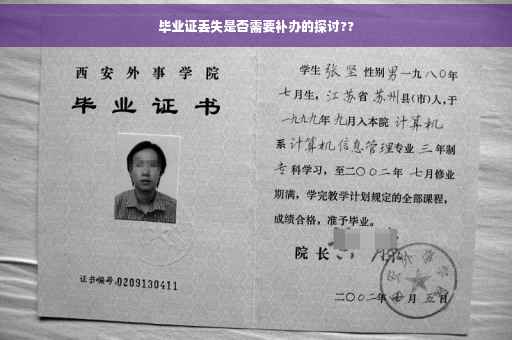 毕业证丢失是否需要补办的探讨??
西安外事学院
毕业证书
证书编号:0209130411
学生 张坚 性别 男 一九八〇年
七月生,江苏省 苏州县(市)人,于
一九九九年 九月入本院 计算机
系 计算机信息管理专业 三 年制
专科学习,至二〇〇二年 七月修业
期满,学完教学计划规定的全部课程,
成绩合格,准予毕业。
院长
二〇〇二年 月 五日